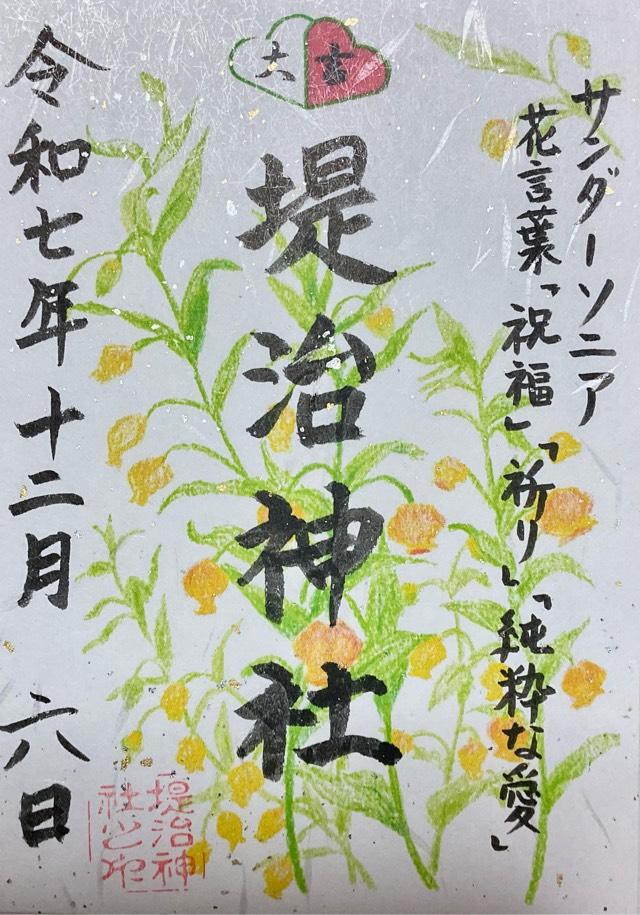 大吉
サンダーソニア
花言葉「祝福」「祈り」「純粋な愛」
堤治神社
令和七年十二月 六日
堤治神
社之印